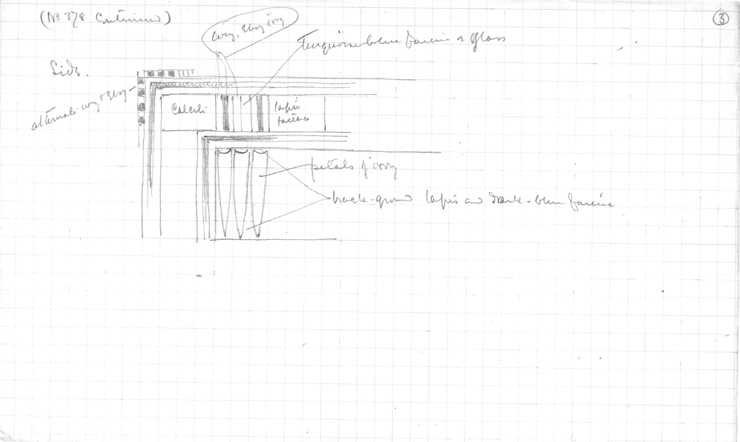 (No 378 Continued)
3
ivory, ebony, ivory
turquoise-blue faience or glass
Side.
alternate ivory & ebony
Calcite
lapis
faience
petals of ivory
back-ground lapis and dark-blue faience